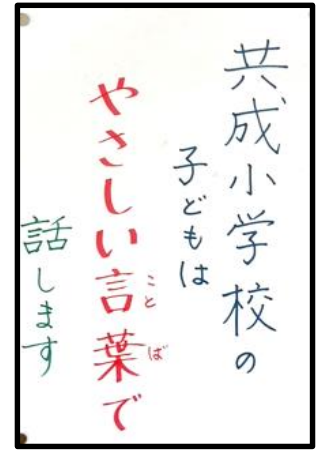 共成小学校の
子どもは
やさしい言葉で
ことば
話します